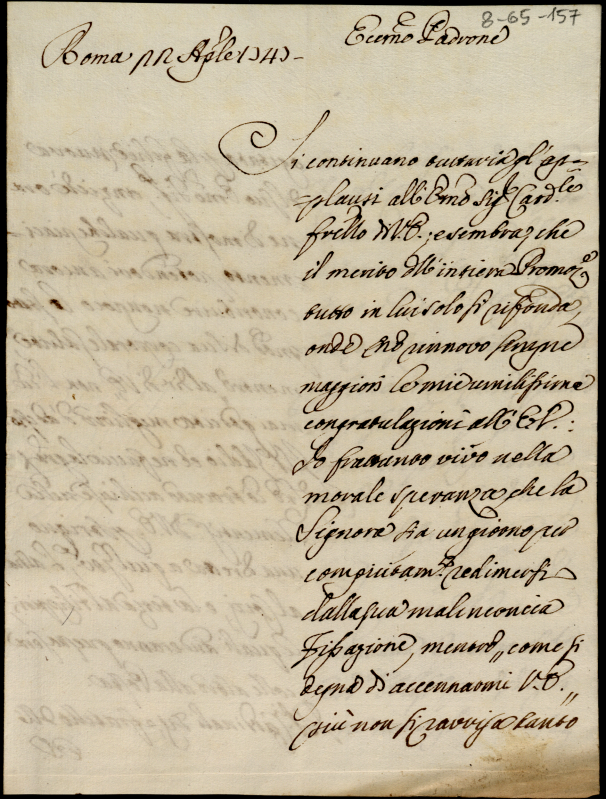 8-65-157
Ecc.mo Padrone
Roma 22 Ap.le 1741
Si continuano tuttavia gl'ap-
plausi all'Em̃o Sig.r Card.le
frẽllo di V.E.; e sembra, che
il merito dell'intiera Promoz.e
tutto in lui solo si riffonda,
onde rinnovo sempre
maggiori le mie umilissime
congratulazioni all'E.V.:
Io frattanto vivo nella
morale speranza, che la
Signora sia un giorno per
compiutam.te redimersi
dalla sua malenconica
fissazione, mentre, come si
degna di accennarmi V.E.,
più non si ravvisa tanto